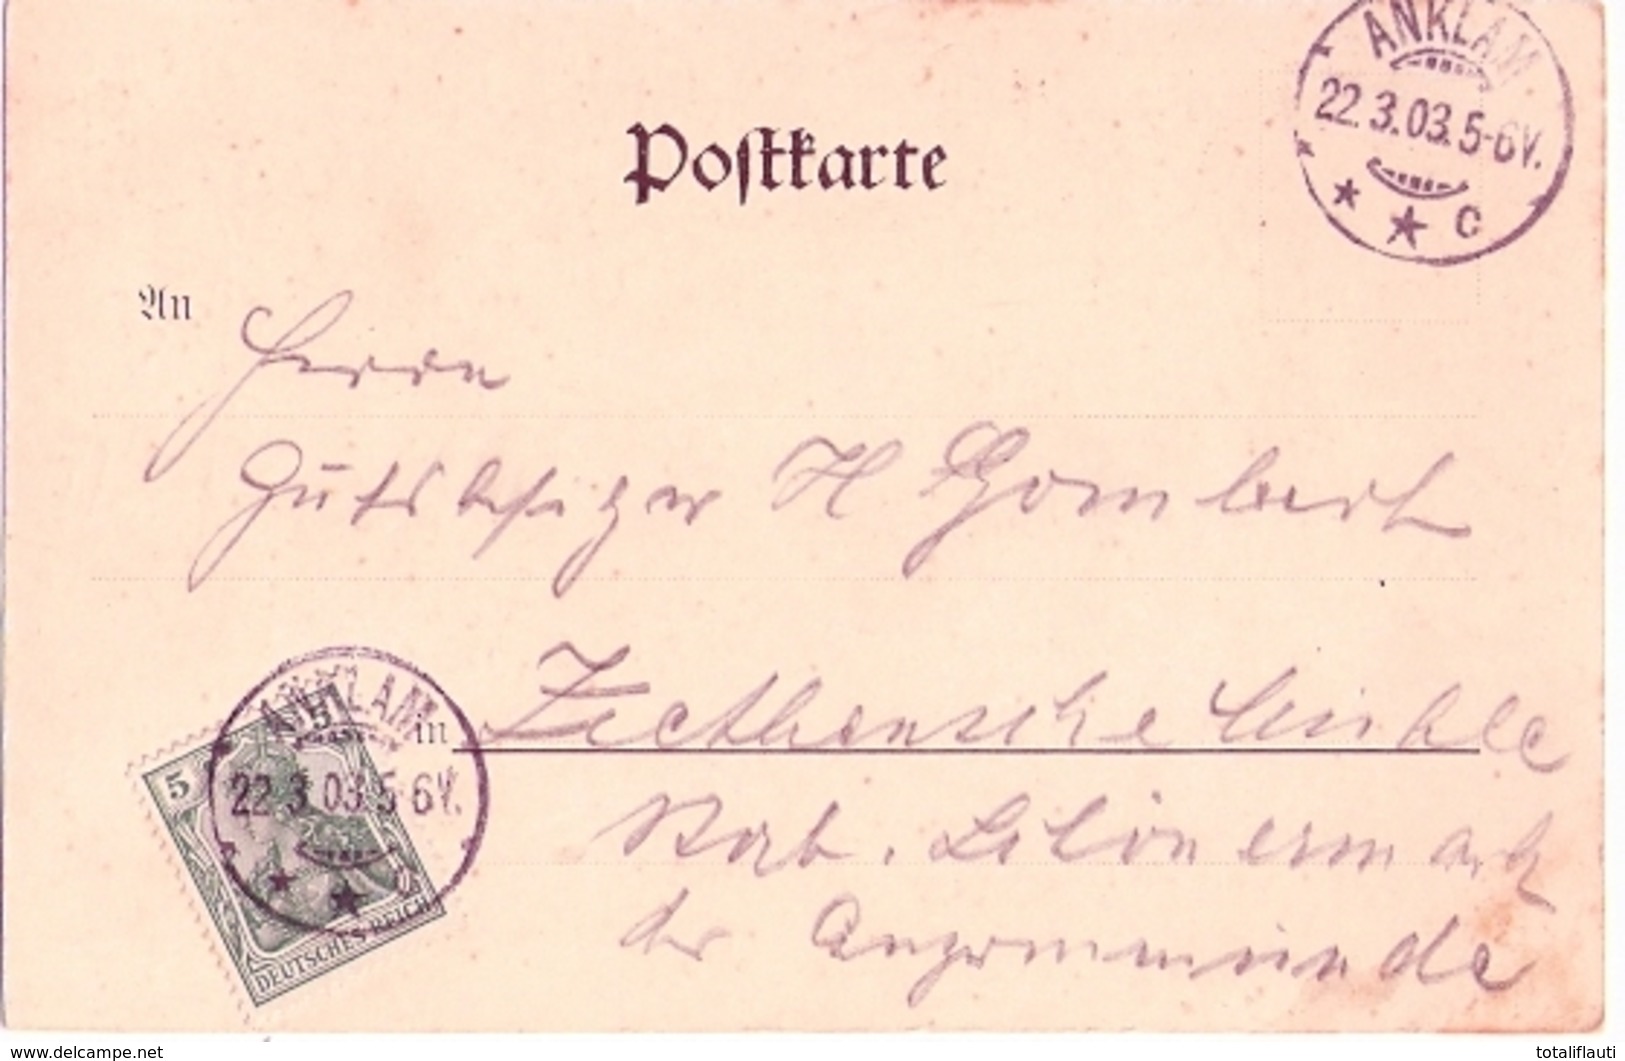 ANKLAM
22.3.03.5-6V.
* * c
Postkarte
An
Herrn
Gutsbesitzer H Gombert
ANKLAM
22.3.03.5-6V.
* *
in Ziethensche Mühle
5
DEUTSCHES REICH
der Angermünde
www.delcampe.net
totaliflauti